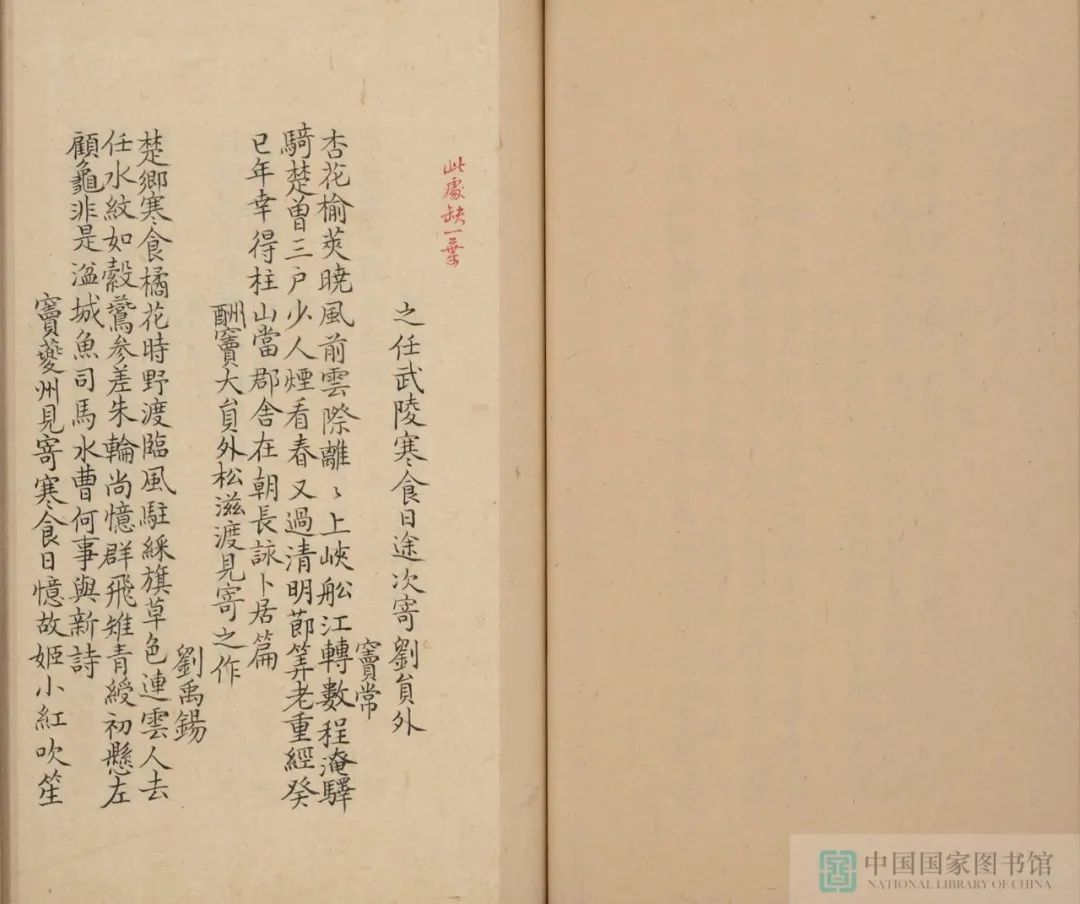 此處缺一葉
之任武陵寒食日途次寄劉貟外
竇常
杏花榆莢曉風前雲際離〻上峽舩江轉數程淹驛
騎楚曾三户少人煙看春又過清明莭筭老重經癸
巳年幸得柱山當郡舍在朝長詠卜居篇
酬竇大貟外松滋渡見寄之作
劉禹錫
楚鄉寒食橘花時野渡臨風駐綵旗草色連雲人去
任水紋如縠鷰参差朱輪尚憶群飛雉青綬初懸左
顧龜非是湓城魚司馬水曹何事與新詩
竇夔州見寄寒食日憶故姬小紅吹笙
中国国家图书馆
NATIONAL LIBRARY OF CHINA